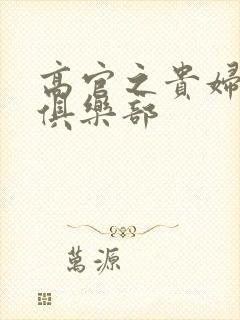 高官之貴婦
俱樂部
萬源